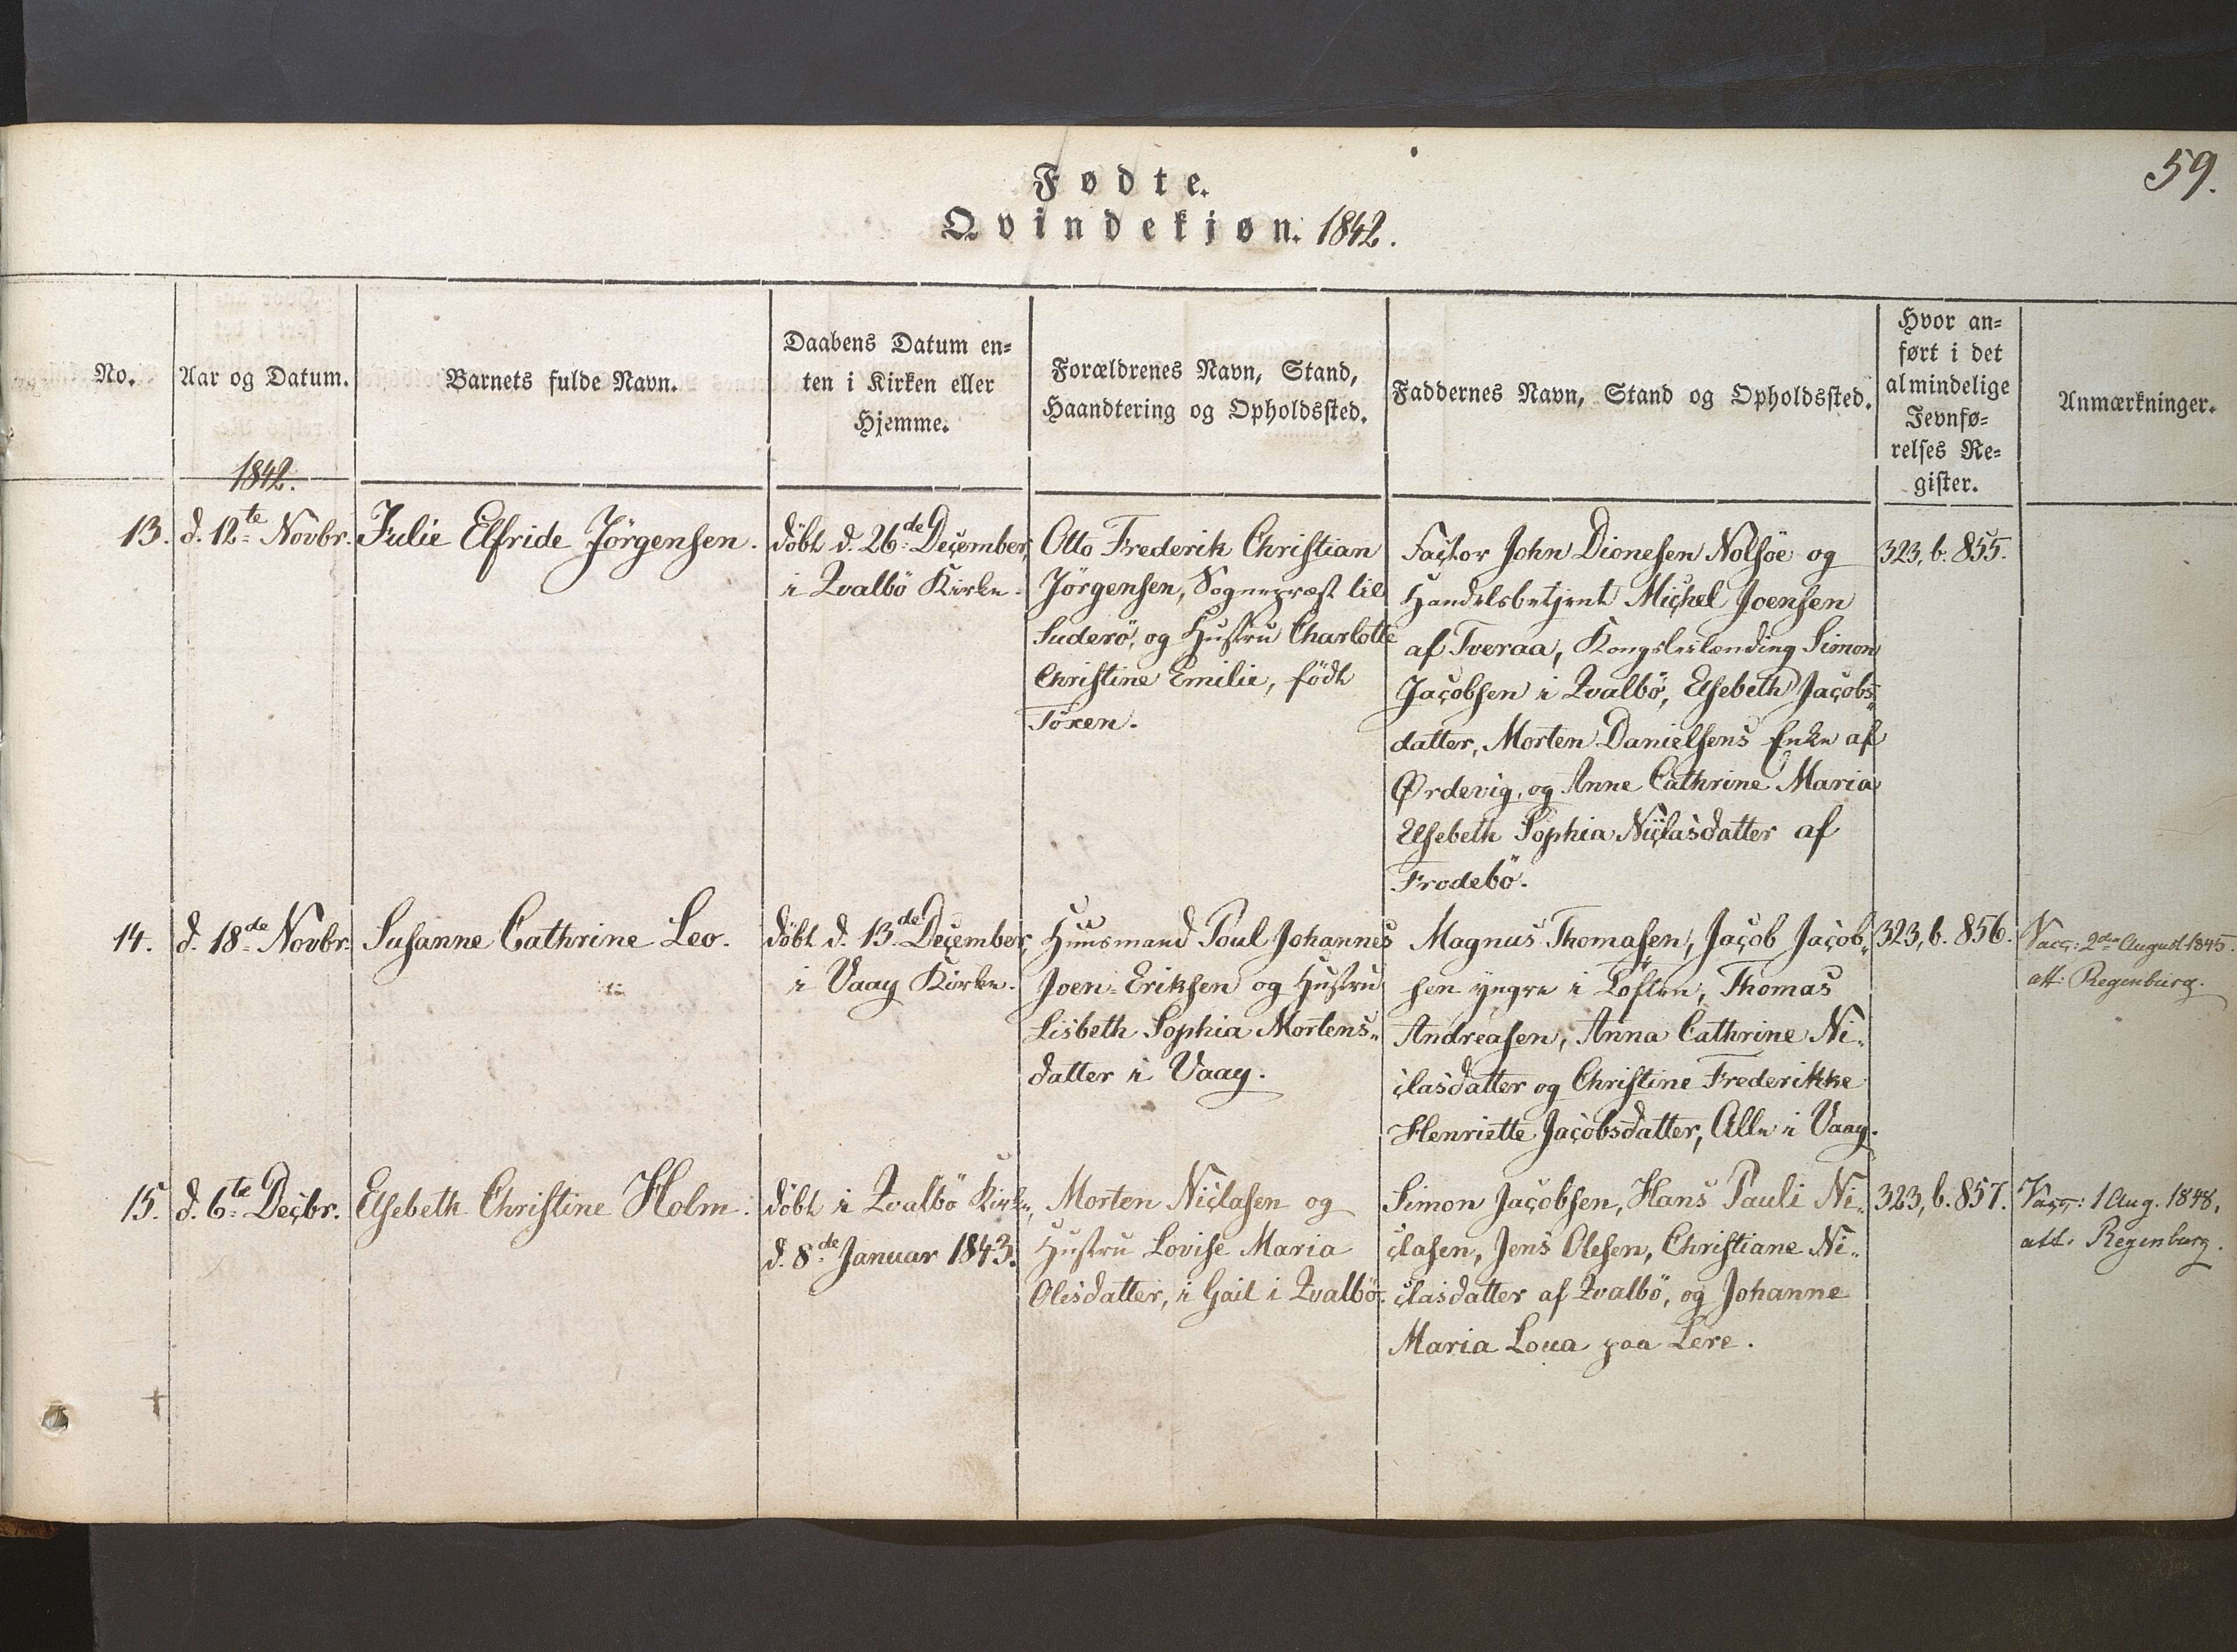 59.
Fødte.
Qvindekjøn. 1842.
No.
Aar og Datum.
Barnets fulde Navn.
Daabens Datum en=
ten i Kirken eller
Hjemme.
Forældrenes Navn, Stand,
Haandtering og Opholdssted.
Faddernes Navn, Stand og Opholdssted.
Hvor an=
ført i det
almindelige
Jevnfø=
relses Re=
gister.
Anmærkninger.
1842.
13.
d. 12te Novbr.
Julie Elfride Jörgensen.
döbt d. 26de December,
i Qvalbö Kirke.
Otto Frederik Christian
Jörgensen, Sognepræst til
Suderö, og Hustru Charlotte
Christine Emilie, födt
Töxen.
Factor John Dionesen Nolsöe og
Handelsbetjent Michel Joensen
af Tveraa, Kongsleilænding Simon
Jacobsen i Qvalbö, Elsebeth Jacobs„
datter, Morten Danielsens Enke af
Ørdevig, og Anne Cathrine Maria
Elsebeth Sophia Niclasdatter af
Frodebö.
323, b. 855.
14.
d. 18de Novbr.
Susanne Cathrine Leo.
döbt d. 13de December,
i Vaag Kirke.
Huusmand Poul Johannes
Joen-Eriksen og Hustru
Lisbeth Sophia Mortens„
datter i Vaag.
Magnus Thomasen, Jacob Jacob„
sen yngre i Löften, Thomas
Andreasen, Anna Cathrine Ni„
clasdatter og Christine Frederikke
Henriette Jacobsdatter, Alle i Vaag.
323, b. 856.
Vacc: 2den August 1845.
att: Regenburg.
15.
d. 6te Decbr.
Elsebeth Christine Holm.
döbt i Qvalbö Kirke,
d. 8de Januar 1843.
Morten Niclasen og
Hustru Lovise Maria
Olisdatter, i Gail i Qvalbö.
Simon Jacobsen, Hans Pauli Ni„
clasen, Jens Olesen, Christiane Ni„
clasdatter af Qvalbö, og Johanne
Maria Loua paa Lere.
323, b. 857.
Vacc: 1 Aug. 1848,
att. Regenburg.